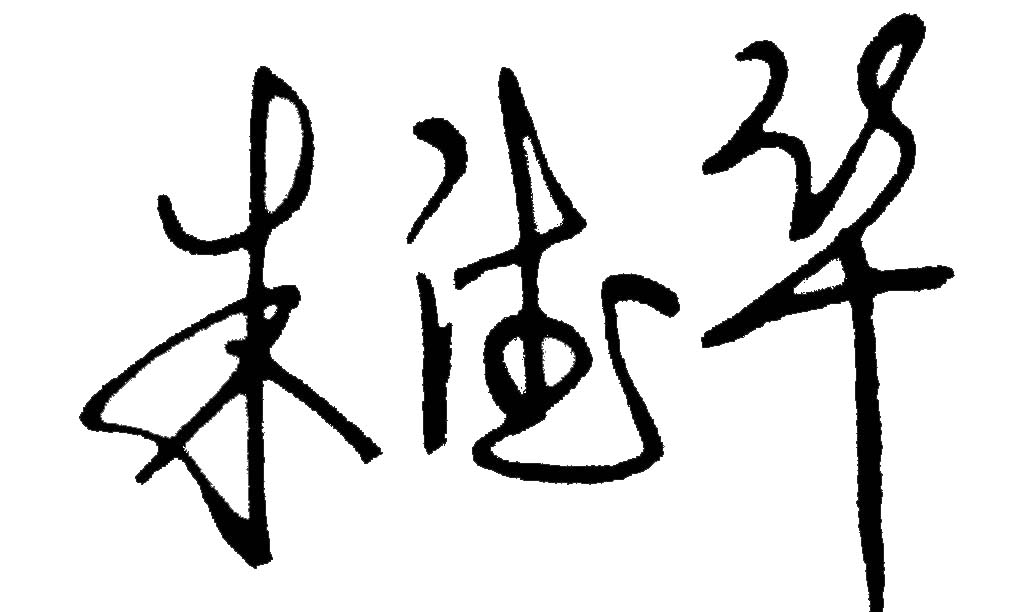 朱德华